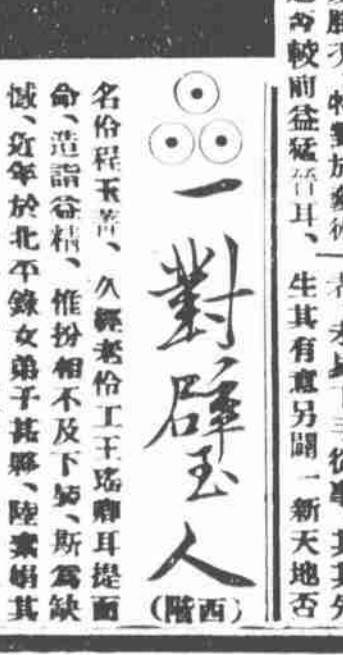 較前益猛晉耳、
生其有意另闢一新天地否
一對璧人
(西階)
名伶程玉菁、久經老伶工王瑤卿耳提面
命、造詣益精、惟扮相不及下、斯爲缺
憾、近年於北平錄女弟子甚夥、陸素娟其